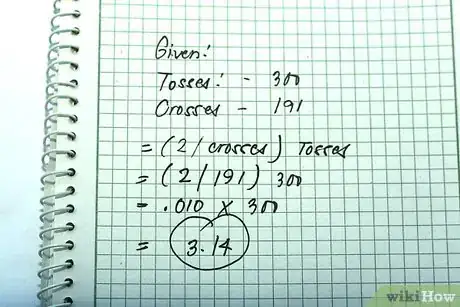 Given:
Tosses: - 300
Crosses - 191
= (2 / crosses) Tosses
= (2 / 191) 300
= .010 x 300
= 3.14
wikiHow